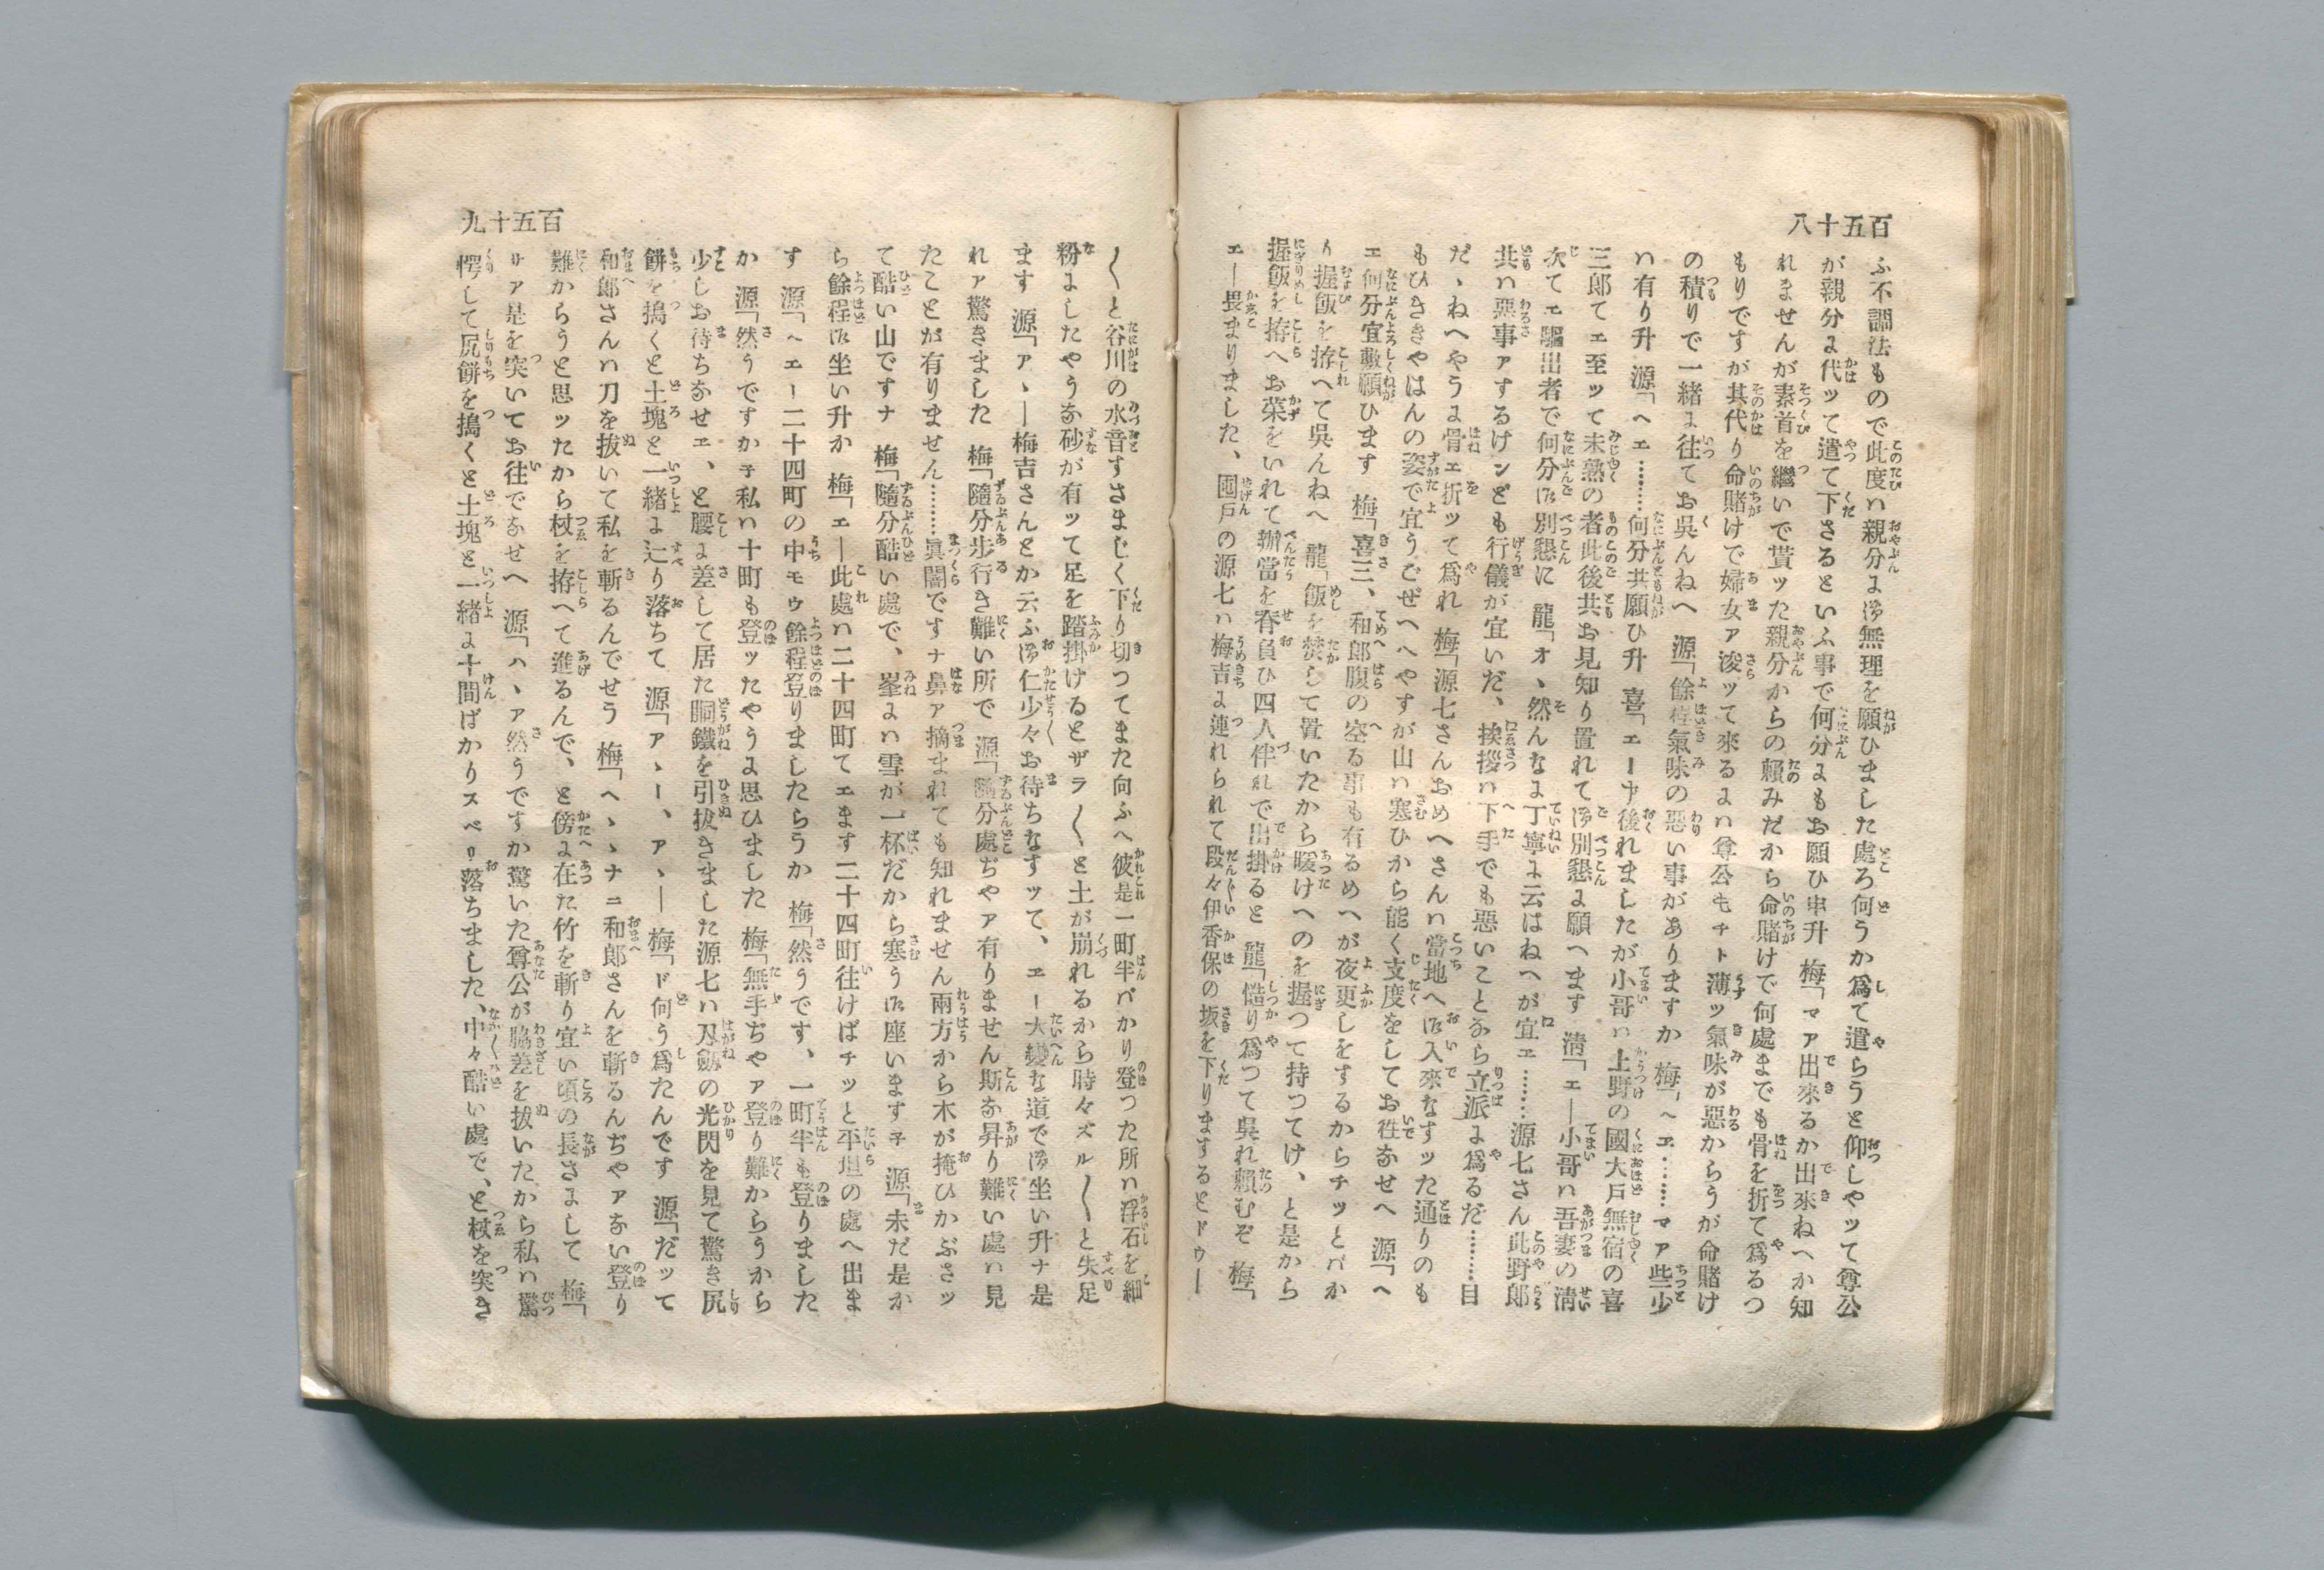 百五十八
ふ不調法もので此度ハ親分よ御無理を願ひました處ろ何うか爲て遣らうと仰しやッて尊公
が親分よ代ッて遣て下さるといふ事で何分よもお願ひ申升　梅「マア出來るか出來ねへか知
れませんが素首を繼いで貰ッた親分からの賴みだから命賭けで何處までも骨を折て爲るつ
もりですが其代り命賭けで婦女ア浚ッて來るよハ尊公もチト薄ッ氣味が惡からうが命賭け
の積りで一緒よ往てお呉んねへ　源「餘程氣味の惡い事がありますか　梅「ヘエ………マア些少
ハ有り升　源「ヘエ………何分共願ひ升　喜「エーナ後れましたが小哥ハ上野の國大戶無宿の喜
三郎てエ至ッて未熟の者此後共お見知り置れて御別懇よ願へます　淸「エー小哥ハ吾妻の淸
次てエ驅出者で何分御別懇に　龍「オヽ然んなよ丁寧よ云はねへが宜エ………源七さん此野郎
共ハ惡事アするけンども行儀が宜いだ、挨拶ハ下手でも惡いことなら立派よ爲るだ………目
だゝねへやうよ骨エ折ッて爲れ　梅「源七さんおめへさんハ當地へ御入來なすッた通りのも
もひききやはんの姿で宜うござへやすが山ハ寒ひから能く支度をしてお往なせへ　源「ヘ
エ何分宜敷願ひます　梅「喜三、和郎腹の空る事も有るめへが夜更しをするからチッとバか
り握飯を拵へて呉んねへ　龍「飯を焚して置いたから暖けへのを握つて持つてけ、と是から
握飯を拵へお菜をいれて辦當を脊負ひ四人伴れで出掛ると　龍「慥り爲つて呉れ賴むぞ　梅「
エー畏まりました、囘戶の源七ハ梅吉よ連れられて段々伊香保の坂を下りまするとドゥー
百五十九
〳〵と谷川の水音すさまじく下り切つてまた向ふへ彼是一町半バかり登つた所ハ浮石を細
粉よしたやうな砂が有ッて足を踏掛けるとザラ〳〵と土が崩れるから時々ズル〳〵と失足
ます　源「アヽー梅吉さんとか云ふ御仁少々お待ちなすッて、エー大變な道で御坐い升ナ是
れア驚きました　梅「隨分步行き難い所で　源「隨分處ぢやア有りません斯な昇り難い處ハ見
たことが有りません………眞闇ですナ鼻ア摘まれても知れません兩方から木が掩ひかぶさッ
て酷い山ですナ　梅「隨分酷い處で、峯よハ雪が一杯だから寒う御座いますヨ　源「未だ是か
ら餘程御坐い升か　梅「エー此處ハ二十四町てエます二十四町往けばチッと平坦の處へ出ま
す　源「ヘエー二十四町の中モゥ餘程登りましたらうか　梅「然うです、一町半も登りました
か　源「然うですかヨ私ハ十町も登ッたやうよ思ひました　梅「無手ぢやア登り難からうから
少しお待ちなせエ、と腰よ差して居た胴鐵を引拔きました源七ハ刄劔の光閃を見て驚き尻
餅を搗くと土塊と一緖よ辷り落ちて　源「アヽー、アヽー　梅「ド何う爲たんです　源「だッて
和郎さんハ刀を拔いて私を斬るんでせう　梅「ヘヽヽナニ和郎さんを斬るんぢやアない登り
難からうと思ッたから杖を拵へて進るんで、と傍よ在た竹を斬り宜い頃の長さよして　梅「
サア是を突いてお往でなせへ　源「ハヽア然うですか驚いた尊公が脇差を拔いたから私ハ驚
愕して尻餅を搗くと土塊と一緖よ十間ばかりスベリ落ちました、中々酷い處で、と杖を突き